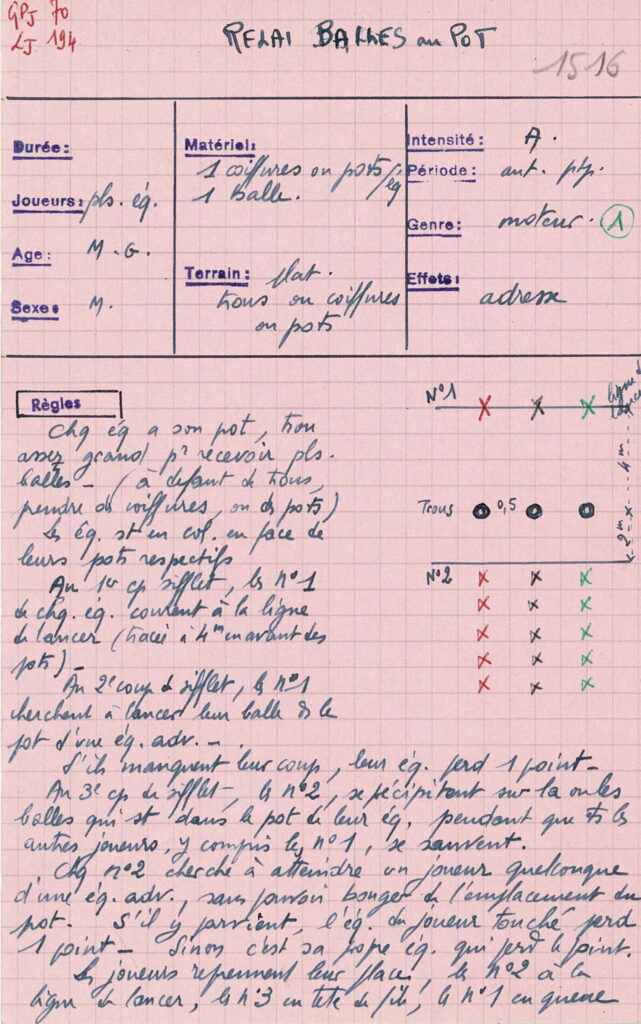 GPJ 70
LJ 194
RELAI BALLES au POT
1516
Durée:
Joueurs: pls. ég.
Age: M. G.
Sexe: M.
Matériel:
1 coiffures ou pots/ég
1 balle.
Terrain: plat.
trous ou coiffures
ou pots
Intensité: A.
Période: aut. ptp.
Genre: moteur. 1
Effets:
adresse
Règles
Chq ég a son pot, trou
assez grand pr recevoir pls.
balles - (à défaut de trous,
prendre des coiffures, ou des pots)
Les ég. st en col. en face de
leurs pots respectifs
Au 1er cp sifflet, les n°1
de chq. ég. courent à la ligne
de lancer (tracée à 4m en avant des
pots) -
Au 2e coup de sifflet, les n°1
cherchent à lancer leur balle ds le
pot d'une ég. adv. -
S'ils manquent leur coup, leur ég. perd 1 point -
Au 3e cp de sifflet, les n°2, se précipitent sur la ou les
balles qui st dans le pot de leur ég. pendant que ts les
autres joueurs, y compris les n°1, se sauvent.
Chq n°2 cherche à atteindre un joueur quelconque
d'une ég. adv., sans pouvoir bouger de l'emplacement du
pot. S'il y parvient, l'ég. du joueur touché perd
1 point - Sinon c'est sa propre ég. qui perd le point.
Les joueurs reprennent leur place, les n°2 à la
ligne de lancer, les n°3 en tête de file, les n°1 en queue
N°1
ligne de lancer
Trous 0,5
4m
2m
N°2